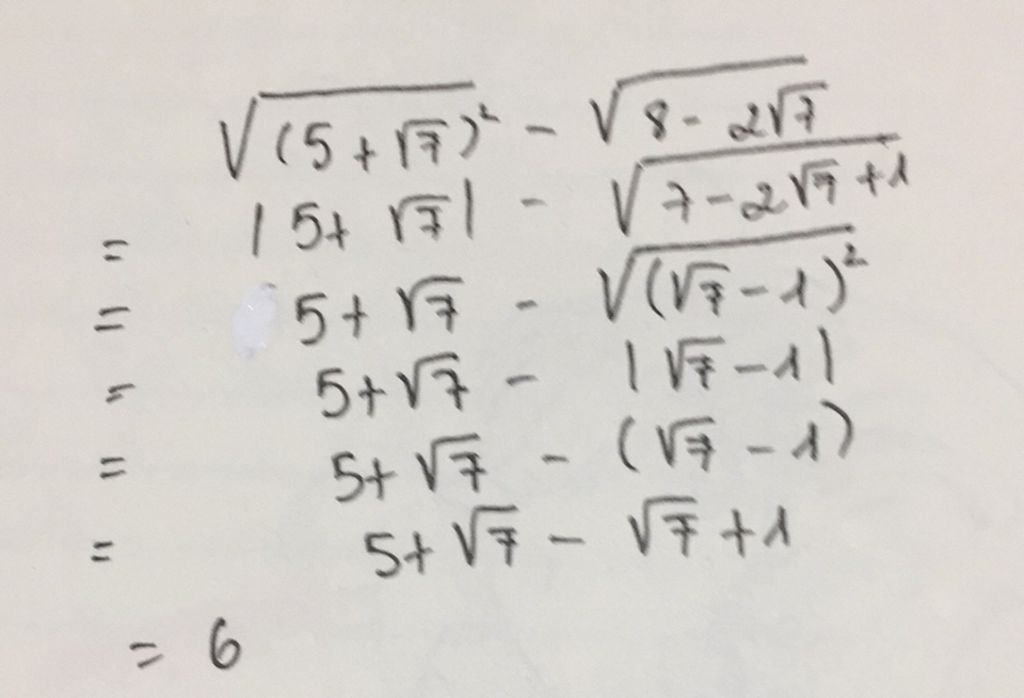 √(5+√7)² - √8-2√7
= |5+√7| - √7-2√7+1
= 5+√7 - √(√7-1)²
= 5+√7 - |√7-1|
= 5+√7 - (√7-1)
= 5+√7 - √7+1
= 6